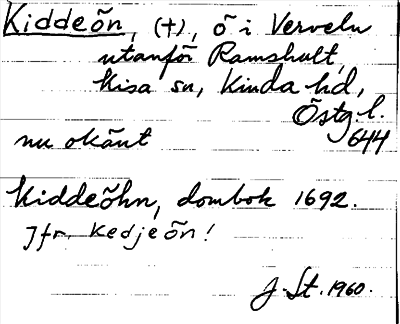 Kiddeön, (†), ö i Verveln
utanför Ramshult,
Kisa sn, Kinda hd,
Östg l.
nu okänt 644
Kiddeöhn, dombok 1692.
Jfr. Kedjeön!
J. St. 1960.